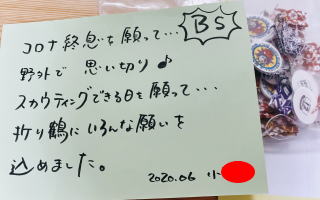 コロナ終息を願って･･･
BS
野外で 思い切り♪
スカウティングできる日を願って･･･
折り鶴にいろんな願いを
込めました。
2020.06 小